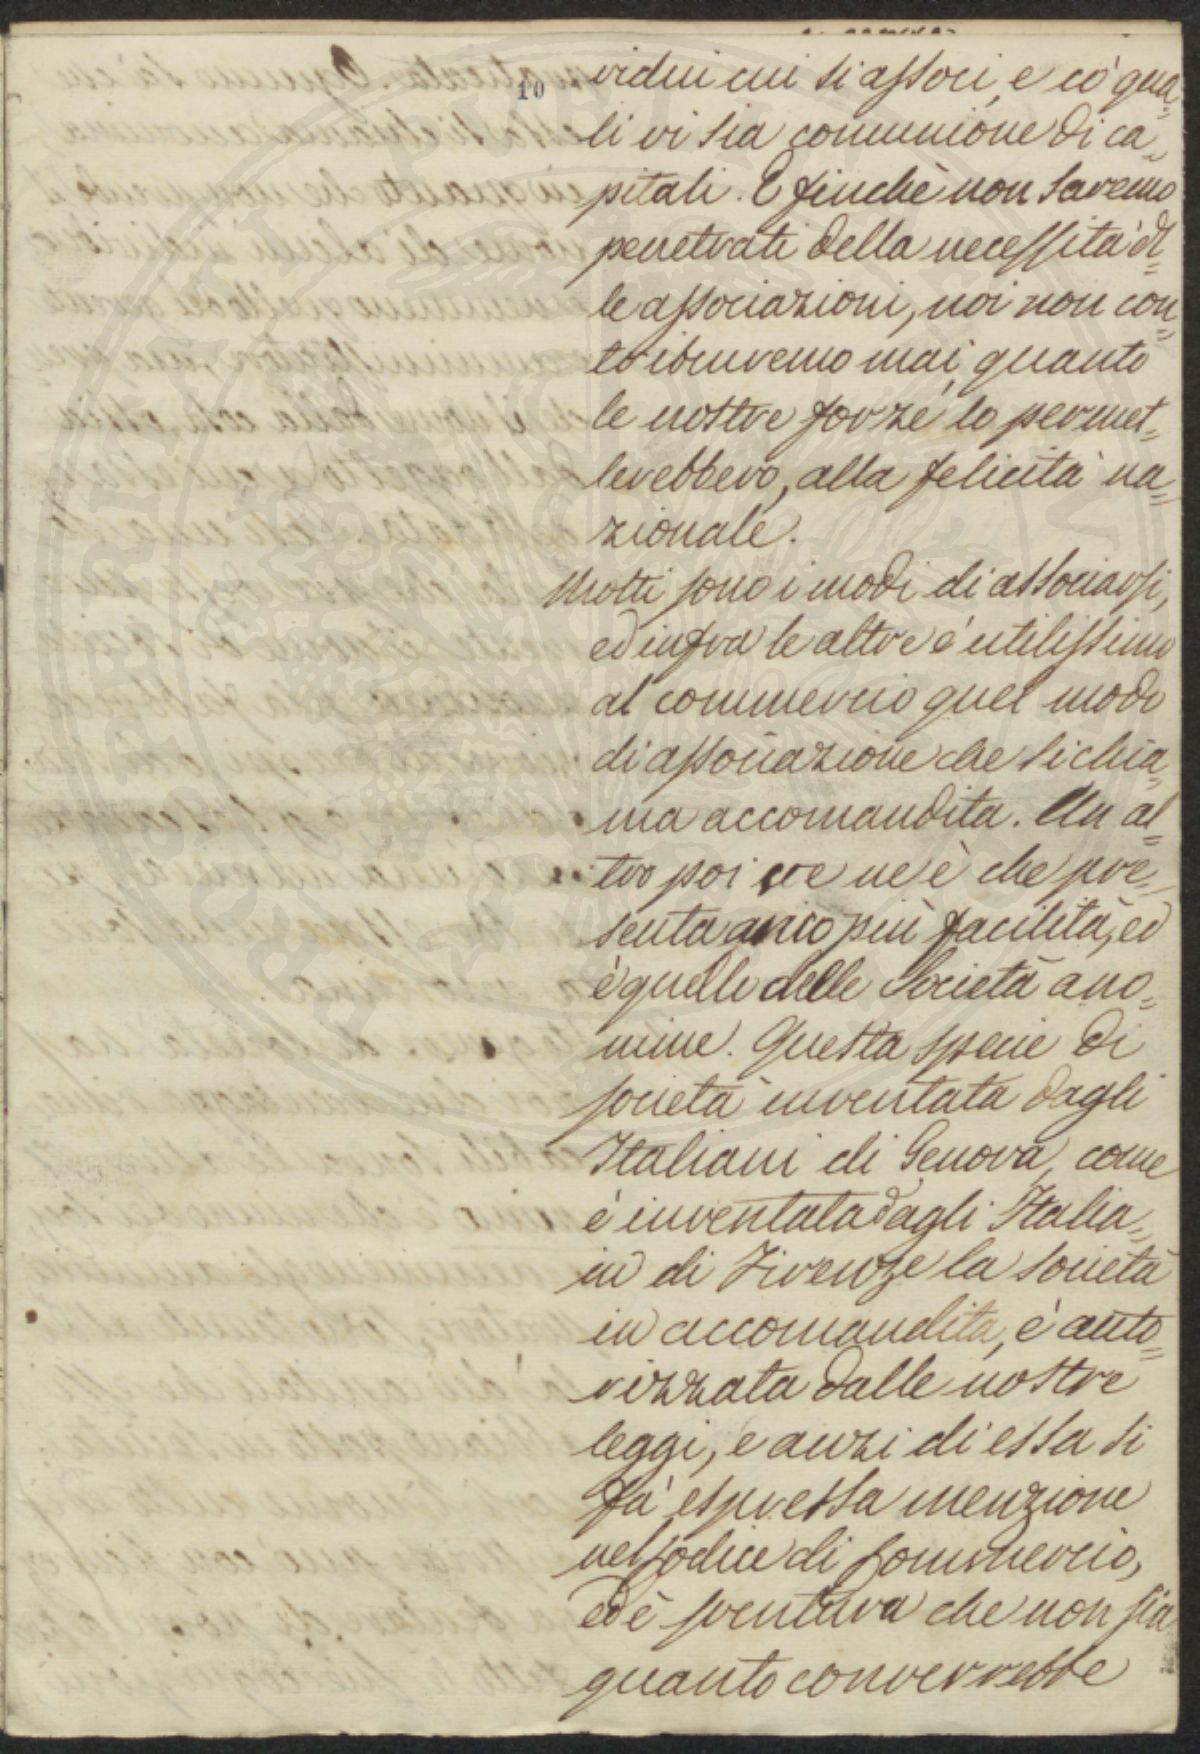 10
vidui cui si associ, e co' qua=
li vi sia comunione di ca=
pitali. E finchè non saremo
penetrati della necessità d'l=
le associazioni, noi non con=
tribuiremo mai, quanto
le nostre forze lo permet=
terebbero, alla felicità na=
zionale.
Molti sono i modi di associarsi,
ed infra le altre è utilissimo
al commercio quel modo
di associazione che si chia=
ma accomandita. Un al=
tro poi ve ne è che pre=
senta anco più facilità, ed
è quello delle Società ano=
nime. Questa specie di
società inventata dagli
Italiani di Genova, come
è inventata dagli Italia=
ni di Firenze la società
in accomandita, è auto=
rizzata dalle nostre
leggi, e anzi di essa si
fa espressa menzione
nel Codice di Commercio,
ed è sventura che non sia
quanto converrebbe